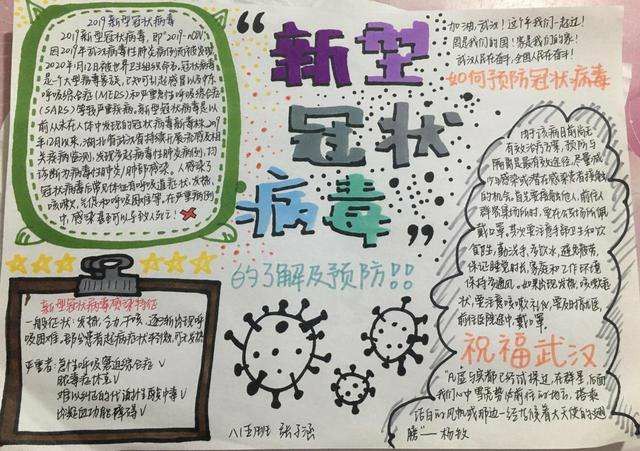 2019新型冠状病毒
2019新型冠状病毒,即"2019-nCoV
因2019年武汉病毒性肺炎病例而被发现
2020年1月12日被世界卫生组织命名,冠状病毒
是一个大型病毒家族,已知可引起感冒以及中东
呼吸综合征(MERS)和严重急性呼吸综合征
(SARS)等较严重疾病。新型冠状病毒是以
前从未在人体中发现的冠状病毒新毒株。2019
年12月以来,湖北省武汉市持续开展流感及相
关疾病监测,发现多起病毒性肺炎病例,均
诊断为病毒性肺炎/肺部感染。人感染了
冠状病毒后常见体征有呼吸道症状、发热、
咳嗽、气促和呼吸困难等,在严重病例
中,感染甚至可以导致人死亡!
"新型
冠状
病毒"
的了解及预防!!
加油,武汉!这个年我们一起过!
国是我们的国!家是我们的家!
武汉人民在拼,全国人民在拼!
如何预防冠状病毒
由于该病目前尚无
有效治疗方案,预防与
隔离是最有效途径,尽量减
少与感染或潜在感染患者接触
的机会,首先要接触他人,前往人
群密集场所时,要在公共场所佩
戴口罩,其次要注意手部卫生和饮
食卫生,勤洗手,多饮水,避免疲劳,
保证睡眠时长,家庭和工作环境
保持多通风。如果出现发热、咳嗽症
状,要注意咳嗽礼仪,要及时就医,
前往医院途中,戴口罩。
祝福武汉
"凡
我们心中
洁白的
膀"——杨敏
新型冠状病毒感染特征
一般症状:发热、乏力、干咳、逐渐出现呼
吸困难,部分患者起病症状轻微,可无发热
严重者:急性呼吸窘迫综合症√
脓毒症休克√
难以纠正的代谢性酸中毒√
出凝血功能障碍√
八(五)班 张子涵